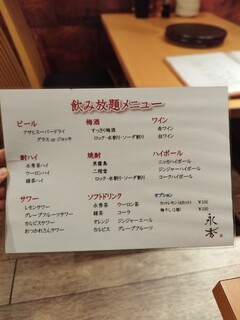 飲み放題メニュー
ビール
アサヒスーパードライ
グラス or ジョッキ
梅酒
すっきり梅酒
ロック・水割り・ソーダ割り
ワイン
赤ワイン
白ワイン
酎ハイ
永秀茶ハイ
ウーロンハイ
緑茶ハイ
焼酎
黒霧島
二階堂
ロック・水割り・ソーダ割り
ハイボール
ニッカハイボール
ジンジャーハイボール
コークハイボール
サワー
レモンサワー
グレープフルーツサワー
カルピスサワー
おつかれさんサワー
ソフトドリンク
永秀茶 ウーロン茶
緑茶 コーラ
オレンジ ジンジャーエール
カルピス グレープフルーツ
オプション
カットレモン ¥100
梅干し(1個) ¥100
永秀